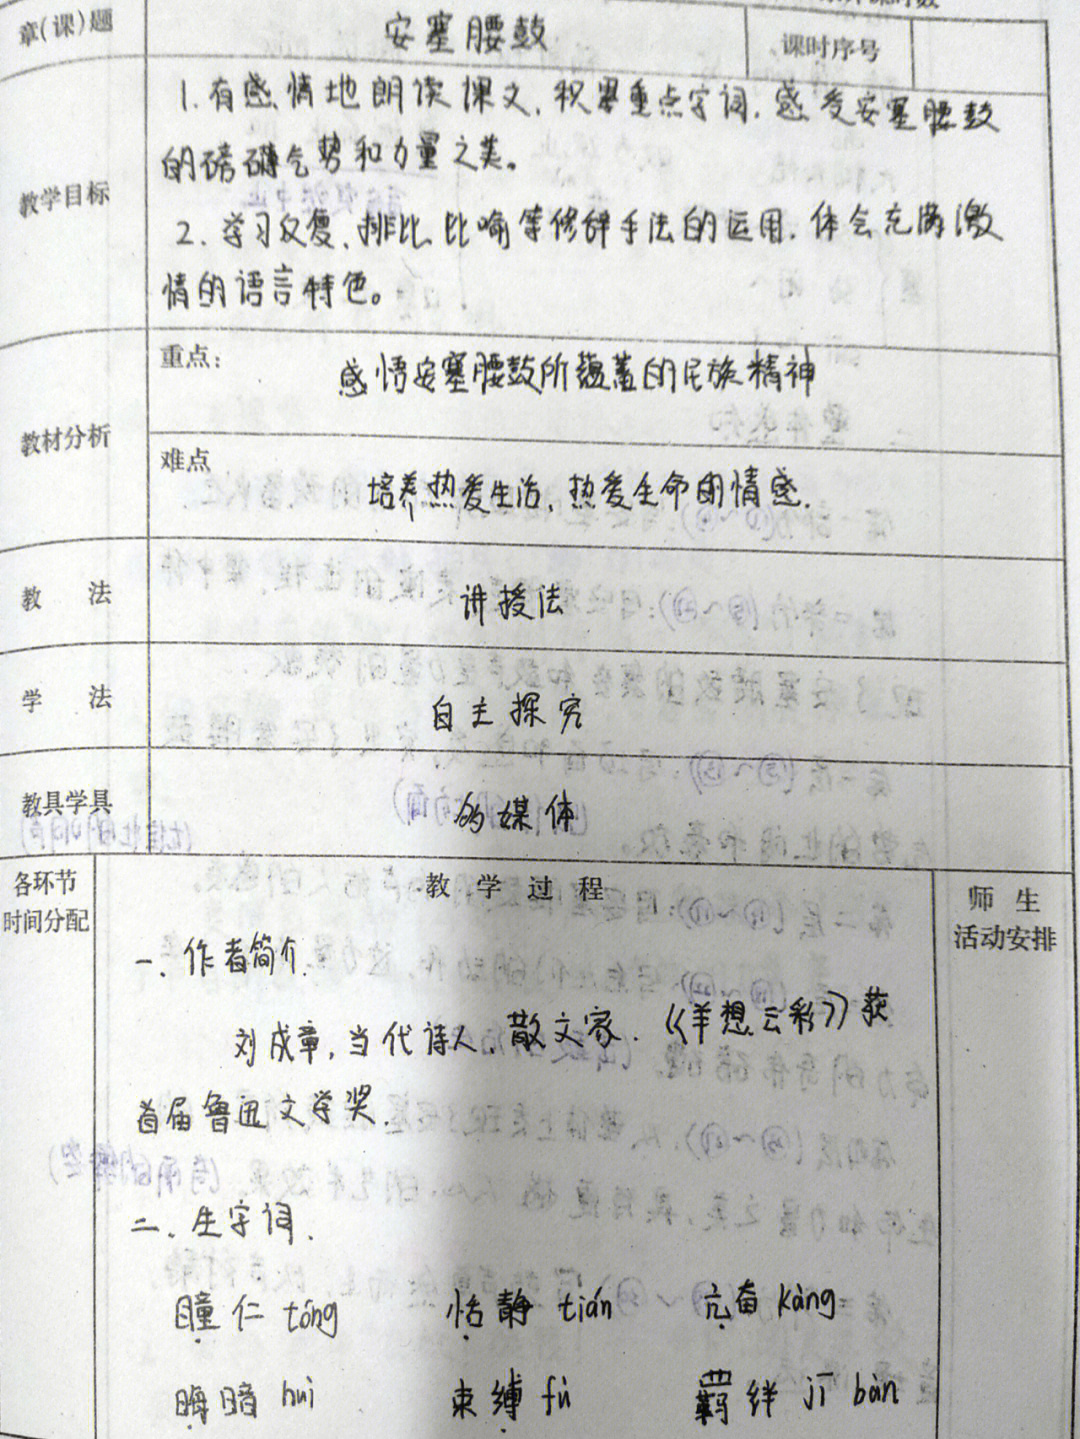 章(课)题
安塞腰鼓
课时序号
教学目标
1.有感情地朗读课文,积累重点字词,感受安塞腰鼓
的磅礴气势和力量之美。
2.学习反复、排比、比喻等修辞手法的运用,体会充满激
情的语言特色。
教材分析
重点:
感悟安塞腰鼓所蕴蓄的民族精神
难点
培养热爱生活,热爱生命的情感.
教 法
讲授法
学 法
自主探究
教具学具
媒体
各环节
时间分配
教 学 过 程
师 生
活动安排
一、作者简介.
刘成章,当代诗人、散文家.《羊想云彩》获
首届鲁迅文学奖.
二、生字词.
瞳仁 tóng 恬静 tián 亢奋 kàng
晦暗 huì 束缚 fù 羁绊 jī bàn